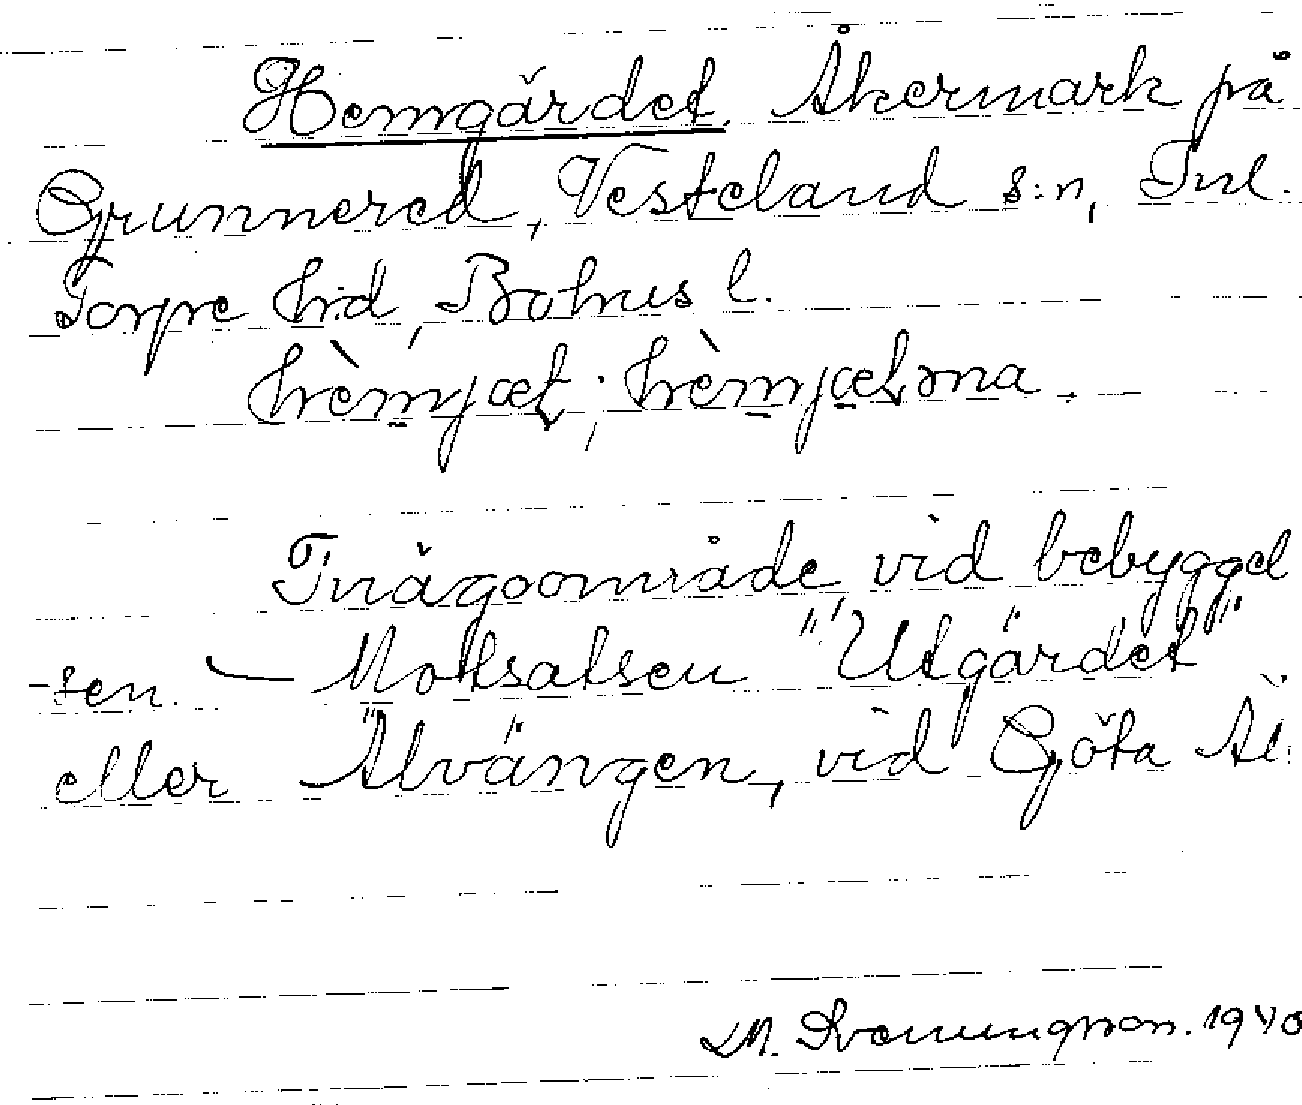 Hemgärdet. Åkermark på
Grunnered, Vesteland s:n, Inl.
Torpe hd, Bohus l.
hèmjæt; hèmjætəna.
Inägoområde vid bebyggel
-sen. — Motsatsen "Utgärdet"
eller Älvängen, vid Göta Äl.
M. Svenungsson. 1940